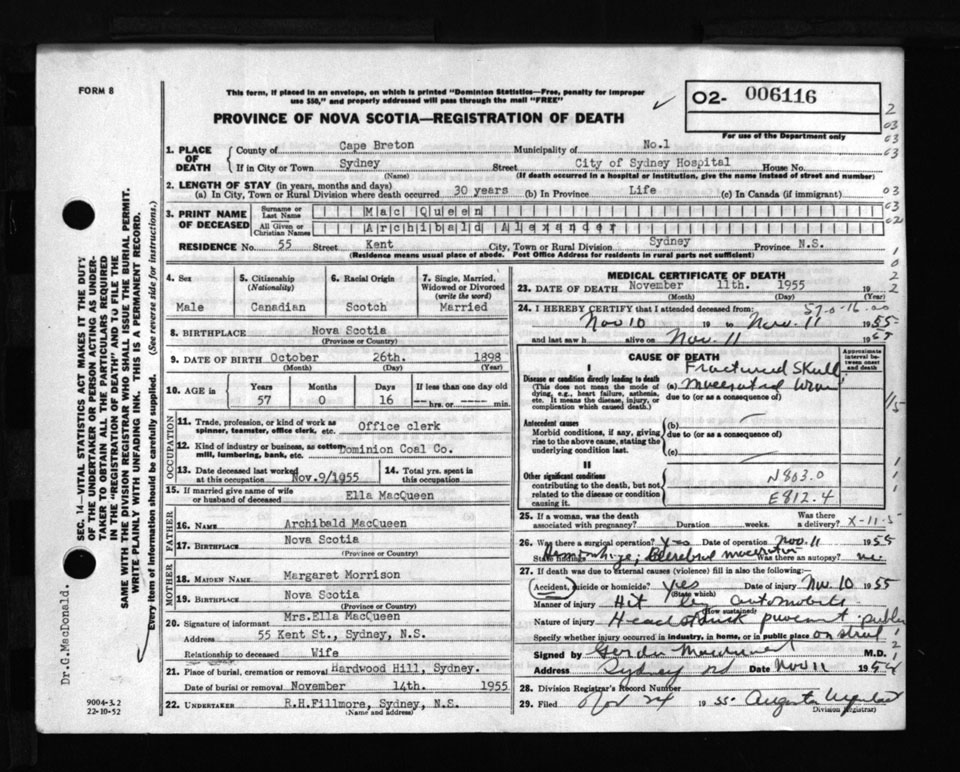 FORM 8
This form, if placed in an envelope, on which is printed "Dominion Statistics—Free, penalty for improper
use $50," and properly addressed will pass through the mail "FREE"
02- 006116
For use of the Department only
PROVINCE OF NOVA SCOTIA—REGISTRATION OF DEATH
1. PLACE OF DEATH
County of Cape Breton Municipality of No.1
If in City or Town Sydney Street City of Sydney Hospital House No.
(Name) (If death occurred in a hospital or institution, give the name instead of street and number)
2. LENGTH OF STAY (in years, months and days)
(a) In City, Town or Rural Division where death occurred 30 years (b) In Province Life (c) In Canada (if immigrant)
3. PRINT NAME OF DECEASED
Surname or Last Name Mac Queen
All Given or Christian Names Archibald Alexander
RESIDENCE No. 55 Street Kent City, Town or Rural Division Sydney Province N.S.
(Residence means usual place of abode. Post Office Address for residents in rural parts not sufficient)
4. Sex Male
5. Citizenship (Nationality) Canadian
6. Racial Origin Scotch
7. Single, Married, Widowed or Divorced (write the word) Married
8. BIRTHPLACE Nova Scotia
(Province or Country)
9. DATE OF BIRTH October 26th. 1898
(Month) (Day) (Year)
10. AGE in Years 57 Months 0 Days 16 If less than one day old hrs. or min.
OCCUPATION
11. Trade, profession, or kind of work as spinner, teamster, office clerk, etc. Office clerk
12. Kind of industry or business, as cotton mill, lumbering, bank, etc. Dominion Coal Co.
13. Date deceased last worked at this occupation Nov.9/1955
14. Total yrs. spent in this occupation
15. If married give name of wife or husband of deceased Ella MacQueen
FATHER
16. NAME Archibald MacQueen
17. BIRTHPLACE Nova Scotia
(Province or Country)
MOTHER
18. MAIDEN NAME Margaret Morrison
19. BIRTHPLACE Nova Scotia
(Province or Country)
20. Signature of informant Mrs.Ella MacQueen
Address 55 Kent St., Sydney, N.S.
Relationship to deceased Wife
21. Place of burial, cremation or removal Hardwood Hill, Sydney.
Date of burial or removal November 14th. 1955
22. UNDERTAKER R.H.Fillmore, Sydney, N.S.
(Name and address)
MEDICAL CERTIFICATE OF DEATH
23. DATE OF DEATH November 11th. 1955
(Month) (Day) (Year)
24. I HEREBY CERTIFY that I attended deceased from:
Nov 10 19 to Nov. 11 1955
and last saw h alive on Nov. 11 19
CAUSE OF DEATH
Approximate interval between onset and death
I
Disease or condition directly leading to death
(This does not mean the mode of dying, e.g., heart failure, asthenia, etc. It means the disease, injury, or complication which caused death.)
Fractured Skull
(a)
due to (or as a consequence of)
Antecedent causes
Morbid conditions, if any, giving rise to the above cause, stating the underlying condition last.
(b)
due to (or as a consequence of)
(c)
II
Other significant conditions
contributing to the death, but not related to the disease or condition causing it.
N803.0
E812.4
25. If a woman, was the death associated with pregnancy? Duration weeks. Was there a delivery?
26. Was there a surgical operation? Yes Date of operation Nov. 11 1955
State findings Was there an autopsy? no
27. If death was due to external causes (violence) fill in also the following:—
Accident, suicide or homicide? Yes Date of injury Nov. 10 1955
(State which)
Manner of injury Hit by automobile
(How sustained)
Nature of injury Head struck pavement
Specify whether injury occurred in industry, in home, or in public place
Signed by M.D.
Address Sydney Date Nov 11 19
28. Division Registrar's Record Number
29. Filed Nov 24 1955
Division Registrar)
SEC. 14—VITAL STATISTICS ACT MAKES IT THE DUTY
OF THE UNDERTAKER OR PERSON ACTING AS UNDER-
TAKER TO OBTAIN ALL THE PARTICULARS REQUIRED
IN THE "REGISTRATION OF DEATH" AND TO FILE THE
SAME WITH THE DIVISION REGISTRAR WHO SHALL ISSUE THE BURIAL PERMIT.
WRITE PLAINLY WITH UNFADING INK. THIS IS A PERMANENT RECORD.
Every item of information should be carefully supplied. (See reverse side for instructions.)
Dr.G.MacDonald.
9004-3.2
22-10-52